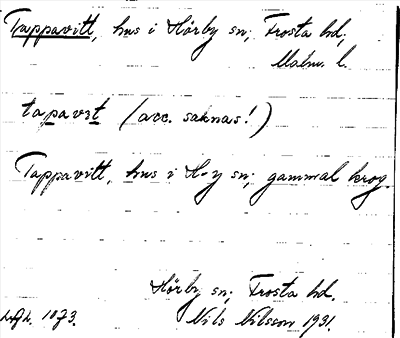 Tappavitt, hus i Hörby sn; Frosta hd;
Malm. l.
tapavɪt (acc. saknas!)
Tappavitt, hus i H-y sn; gammal krog.
Hörby sn; Frosta hd.
Nils Nilsson 1931.